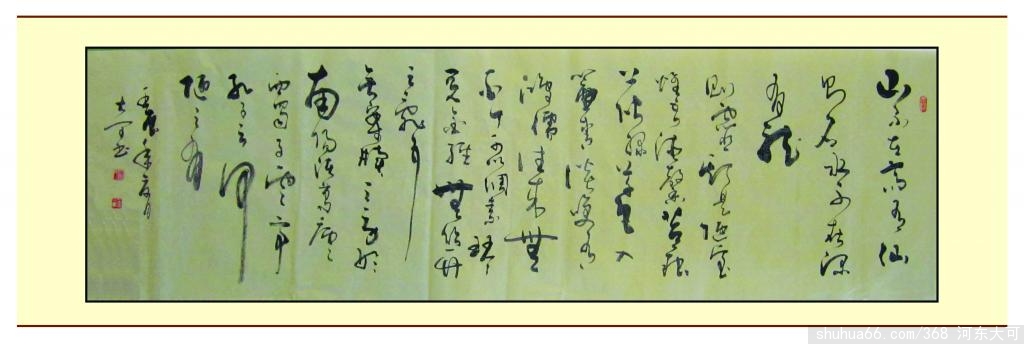 山不在高有仙
则名水不在深
有龙
则灵斯是陋室
惟吾德馨苔痕
上阶绿草色入
帘青谈笑有
鸿儒往来无
白丁可以调素琴
阅金经无丝竹
之乱耳
无案牍之劳形
南阳诸葛庐
西蜀子云亭
孔子云何
陋之有
大可书
shuhua66.com/368 河东大可